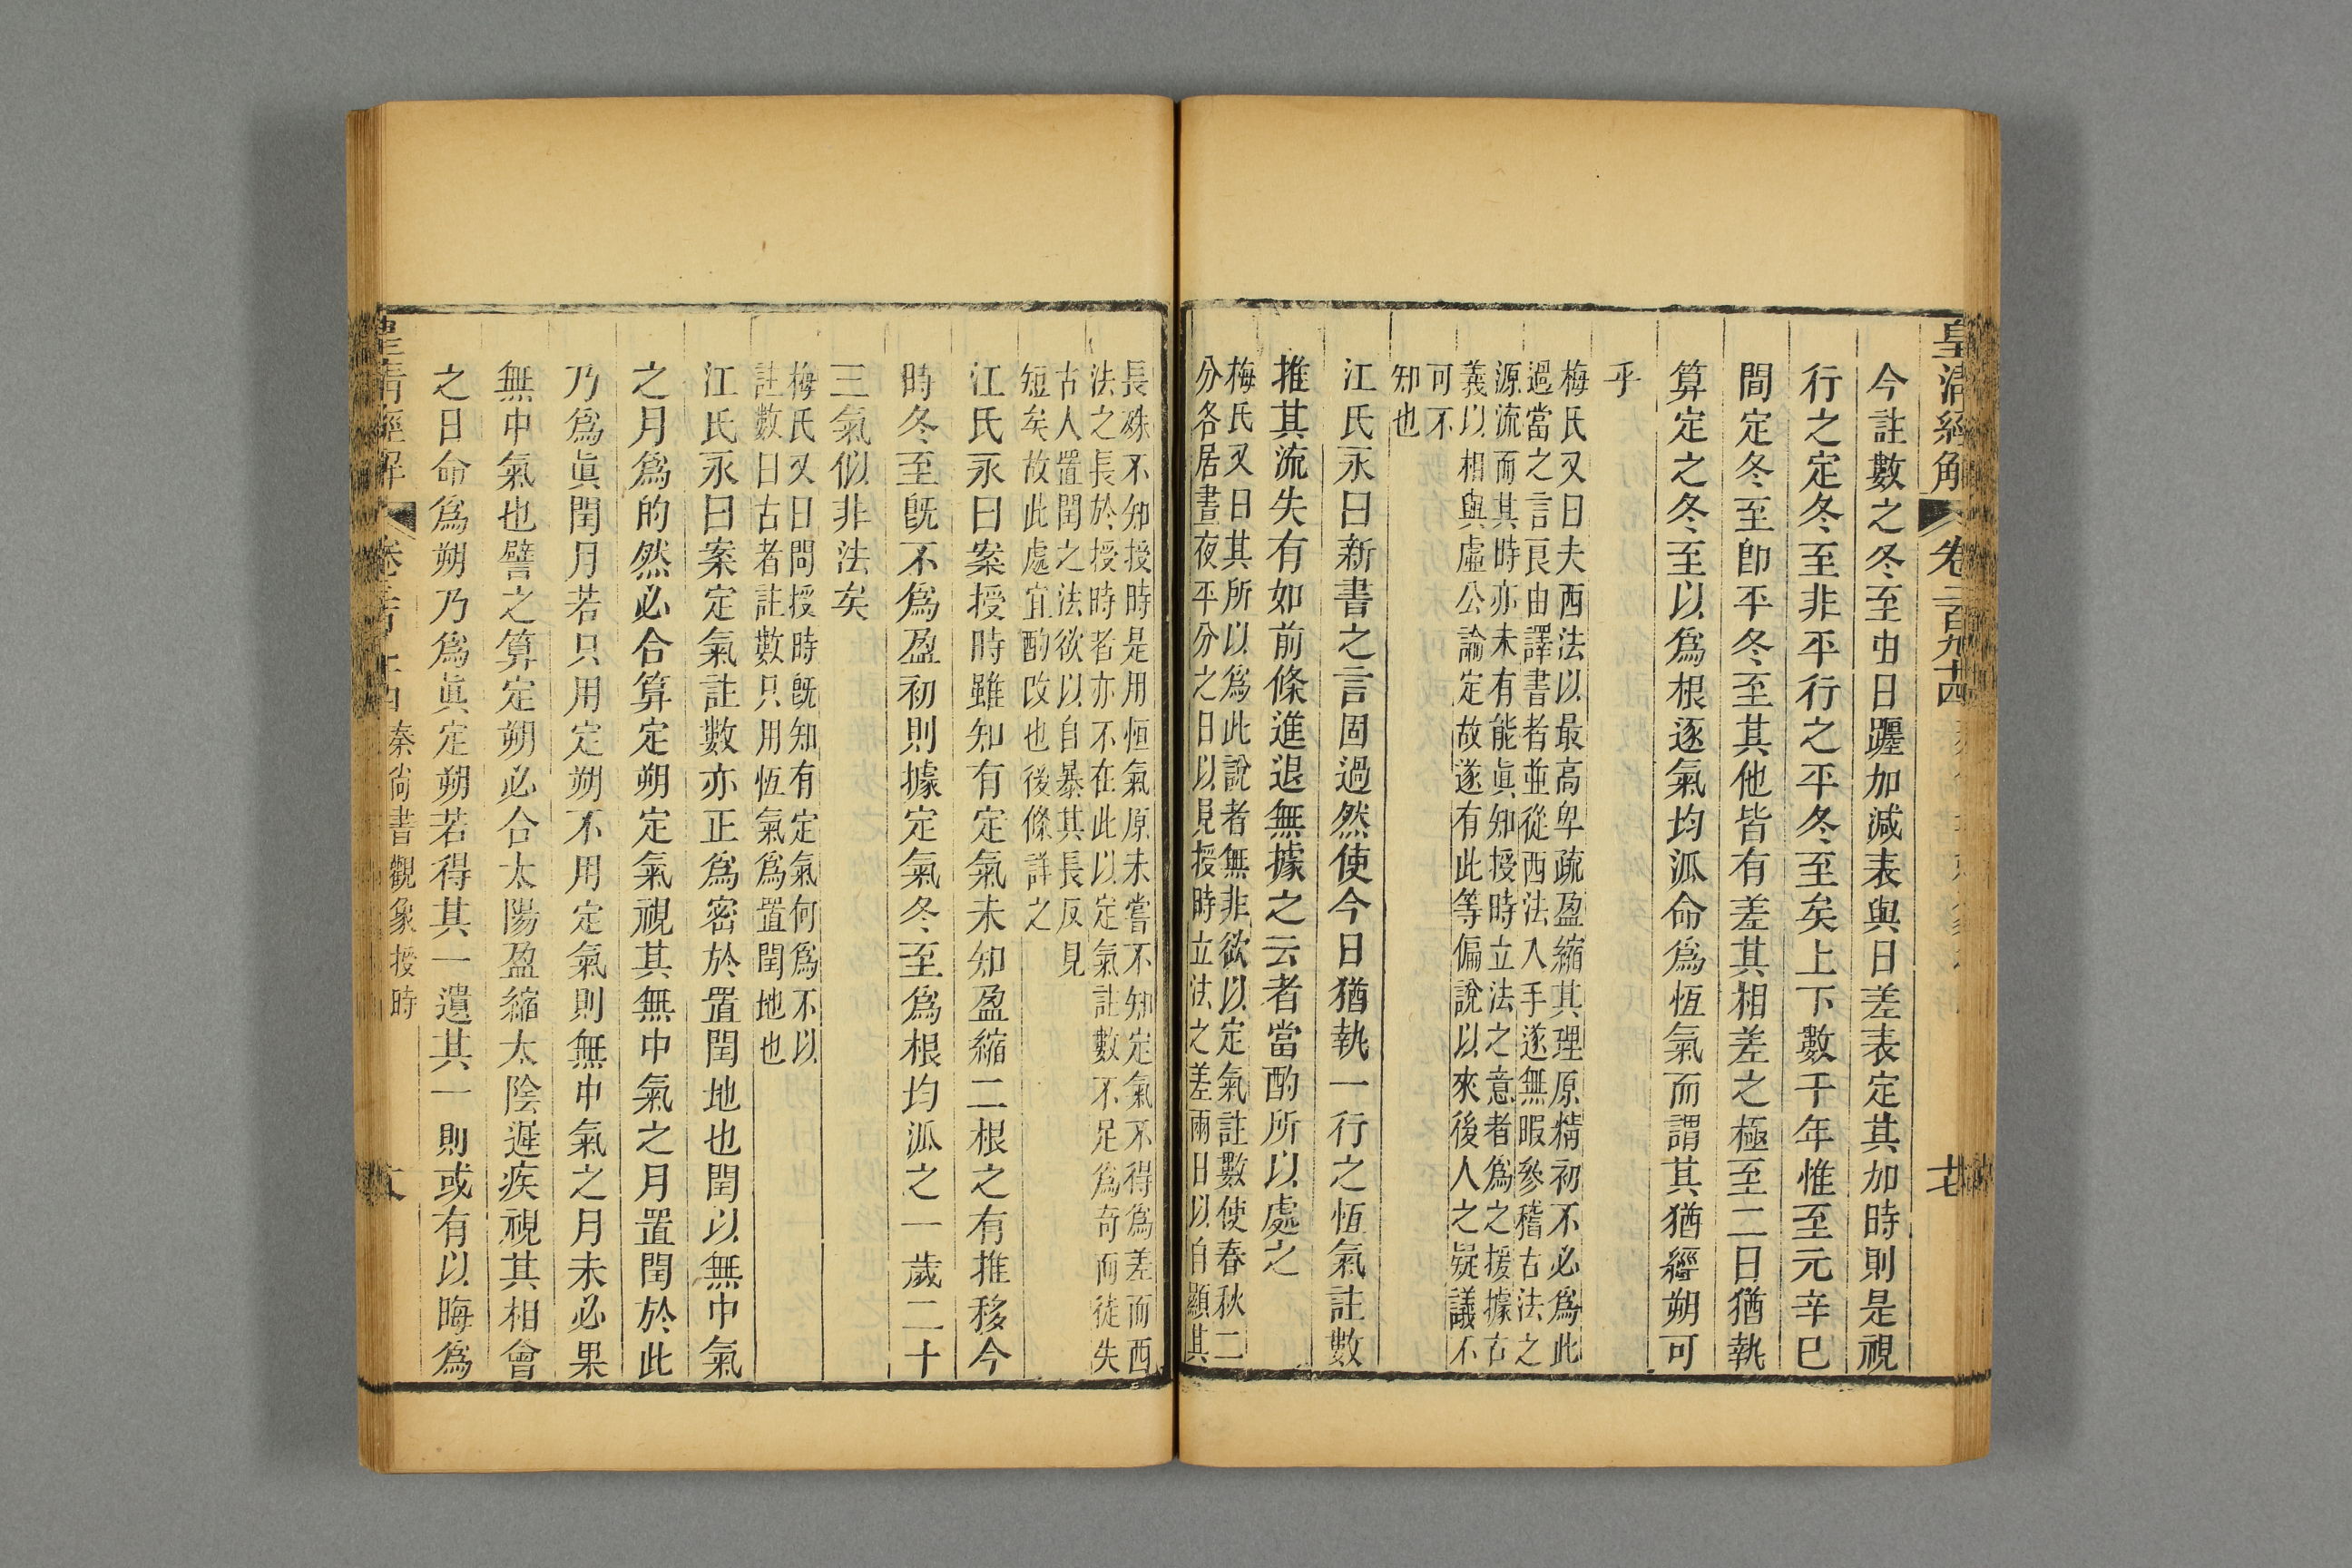 皇清經解 卷二百九十四
今註數之冬至由日躔加減表與日差表定其加時則是視
行之定冬至非平行之平冬至矣上下數千年惟至元辛巳
間定冬至即平冬至其他皆有差其相差之極至二日猶執
算定之冬至以爲根逐氣均派命爲恆氣而謂其猶經朔可
乎
梅氏又曰夫西法以最高卑疏盈縮其理原精初不必爲此
過當之言良由譯書者並從西法入手遂無暇參稽古法之
源流而其時亦未有能眞知授時立法之意者爲之援據古
義以相與虛公論定故遂有此等偏說以來後人之疑議不
可不
知也
江氏永曰新書之言固過然使今日猶執一行之恆氣註數
推其流失有如前條進退無據之云者當酌所以處之
梅氏又曰其所以爲此說者無非欲以定氣註數使春秋二
分各居晝夜平分之日以見授時立法之差兩日以自顯其
長殊不知授時是用恒氣原未嘗不知定氣不得爲差而西
法之長於授時者亦不在此以定氣註數不足爲奇而徒失
古人置閏之法欲以自暴其長反見
短矣故此處宜酌改也後條詳之
江氏永曰案授時雖知有定氣未知盈縮二根之有推移今
時冬至旣不爲盈初則據定氣冬至爲根均派之一歲二十
三氣似非法矣
梅氏又曰問授時旣知有定氣何爲不以
註數曰古者註數只用恆氣爲置閏地也
江氏永曰案定氣註數亦正爲密於置閏地也閏以無中氣
之月爲的然必合算定朔定氣視其無中氣之月置閏於此
乃爲眞閏月若只用定朔不用定氣則無中氣之月未必果
無中氣也譬之算定朔必合太陽盈縮太陰遲疾視其相會
之日命爲朔乃爲眞定朔若得其一遺其一則或有以晦爲
皇清經解 秦尙書觀象授時